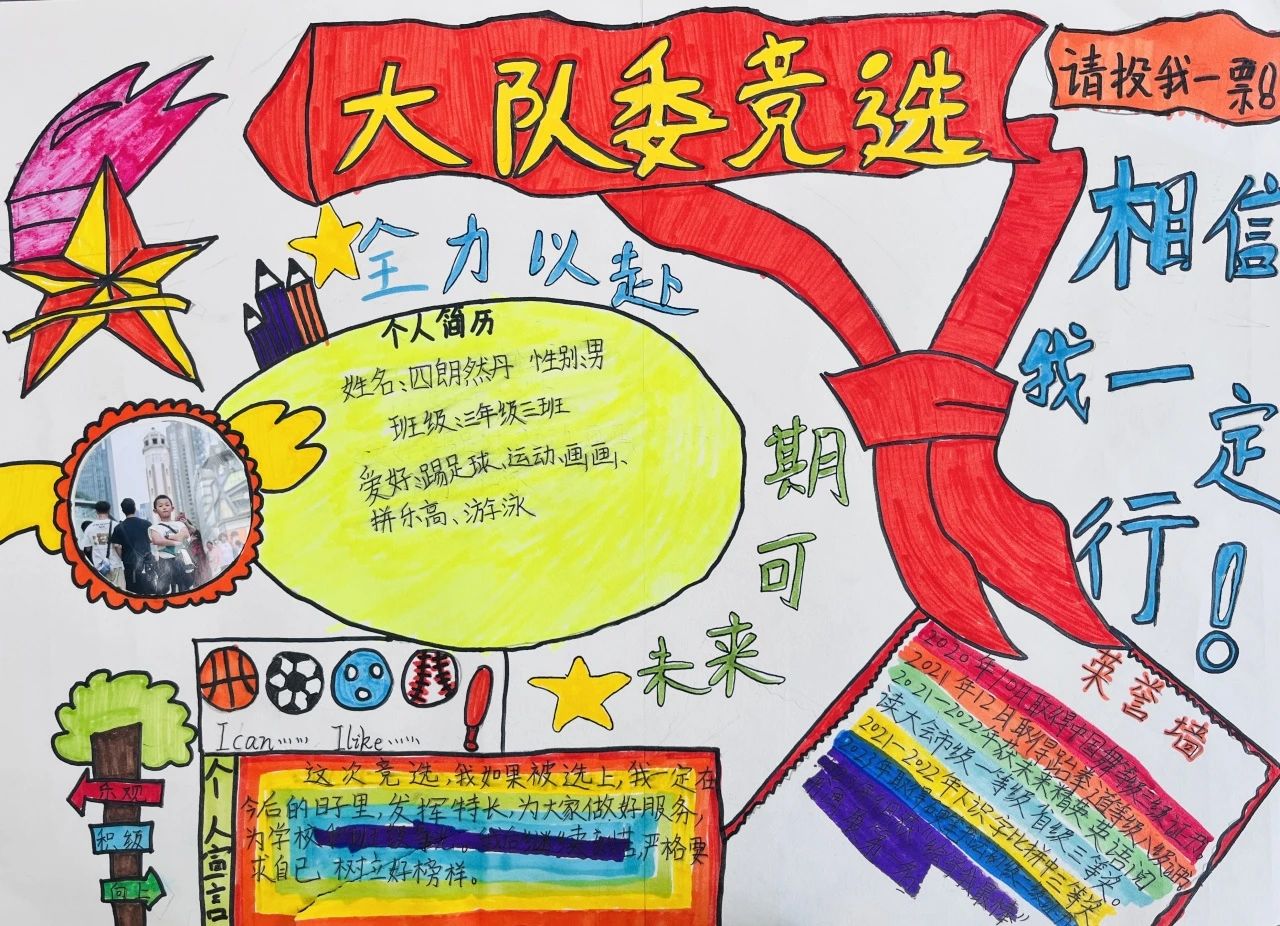 大队委竞选
请投我一票!
相信
我一定
行!
全力以赴
个人简历
姓名:四朗然丹 性别:男
班级:三年级三班
爱好:踢足球、运动、画画、
拼乐高、游泳
期可
未来
I can…… I like……
乐观
积级
向上
个人宣言
这次竞选,我如果被选上,我一定在
今后的日子里,发挥特长,为大家做好服务,
为学校
严格要
求自己,树立好榜样。
荣誉墙
2020年10月取得中国舞等级三级证书
2021年12日取得跆拳道等级八级证书
2021-2022年获未来相英英语阅
读大会市级一等级省级三等奖。
2021-2022年人识字比拼中三等奖
2023年取得